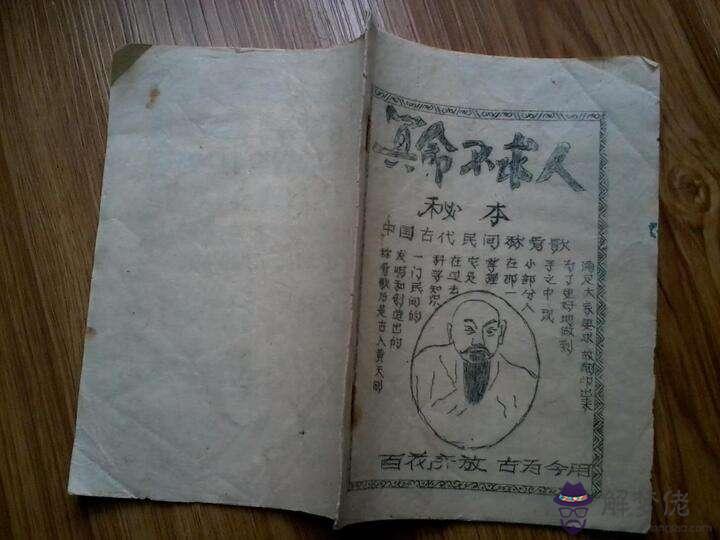 算命不求人
秘本
中国古代民间称骨歌
称骨歌乃是古人黄天刚
发明和创造出的
一门民间的
科学知识
在过去
它是
掌握
在那一
小部分人
手之中 现
为了更好地做到
满足大家要求 故翻印出来
百花齐放 古为今用
解梦佬